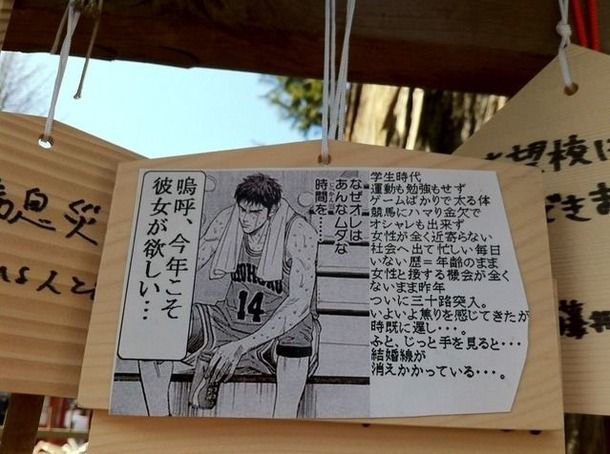 なぜオレは
あんなムダな
時間を…
嗚呼、今年こそ
彼女が欲しい…
14
学生時代
運動も勉強もせず
ゲームばかりで太る体
競馬にハマり金欠で
オシャレも出来ず
女性が全く近寄らない
社会へ出て忙しい毎日
いない歴＝年齢のまま
女性と接する機会が全く
ないまま昨年
ついに三十路突入。
いよいよ焦りを感じてきたが
時既に遅し・・・。
ふと、じっと手を見ると・・・
結婚線が
消えかかっている・・・。
息災
望校に
できま